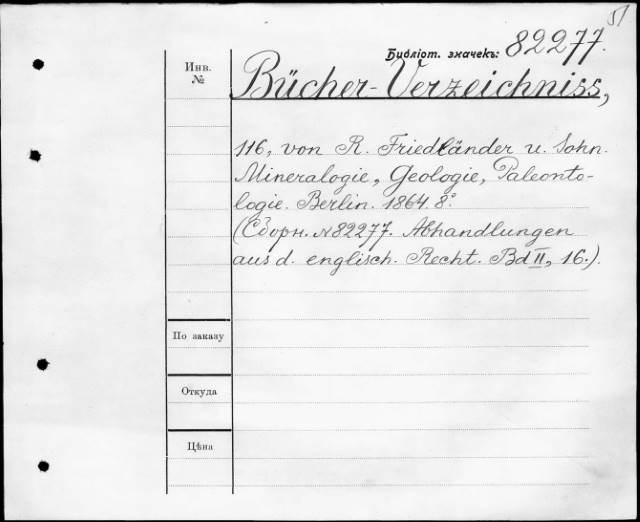 51
Библіот. значекъ: 82277.
Инв.
№
Bücher-Verzeichniss,
116, von R. Friedländer u. Sohn.
Mineralogie, Geologie, Paleonto-
logie. Berlin. 1864. 8°.
(Сборн. №82277. Abhandlungen
aus d. englisch. Recht. Bd II, 16.).
По заказу
Откуда
Цѣна